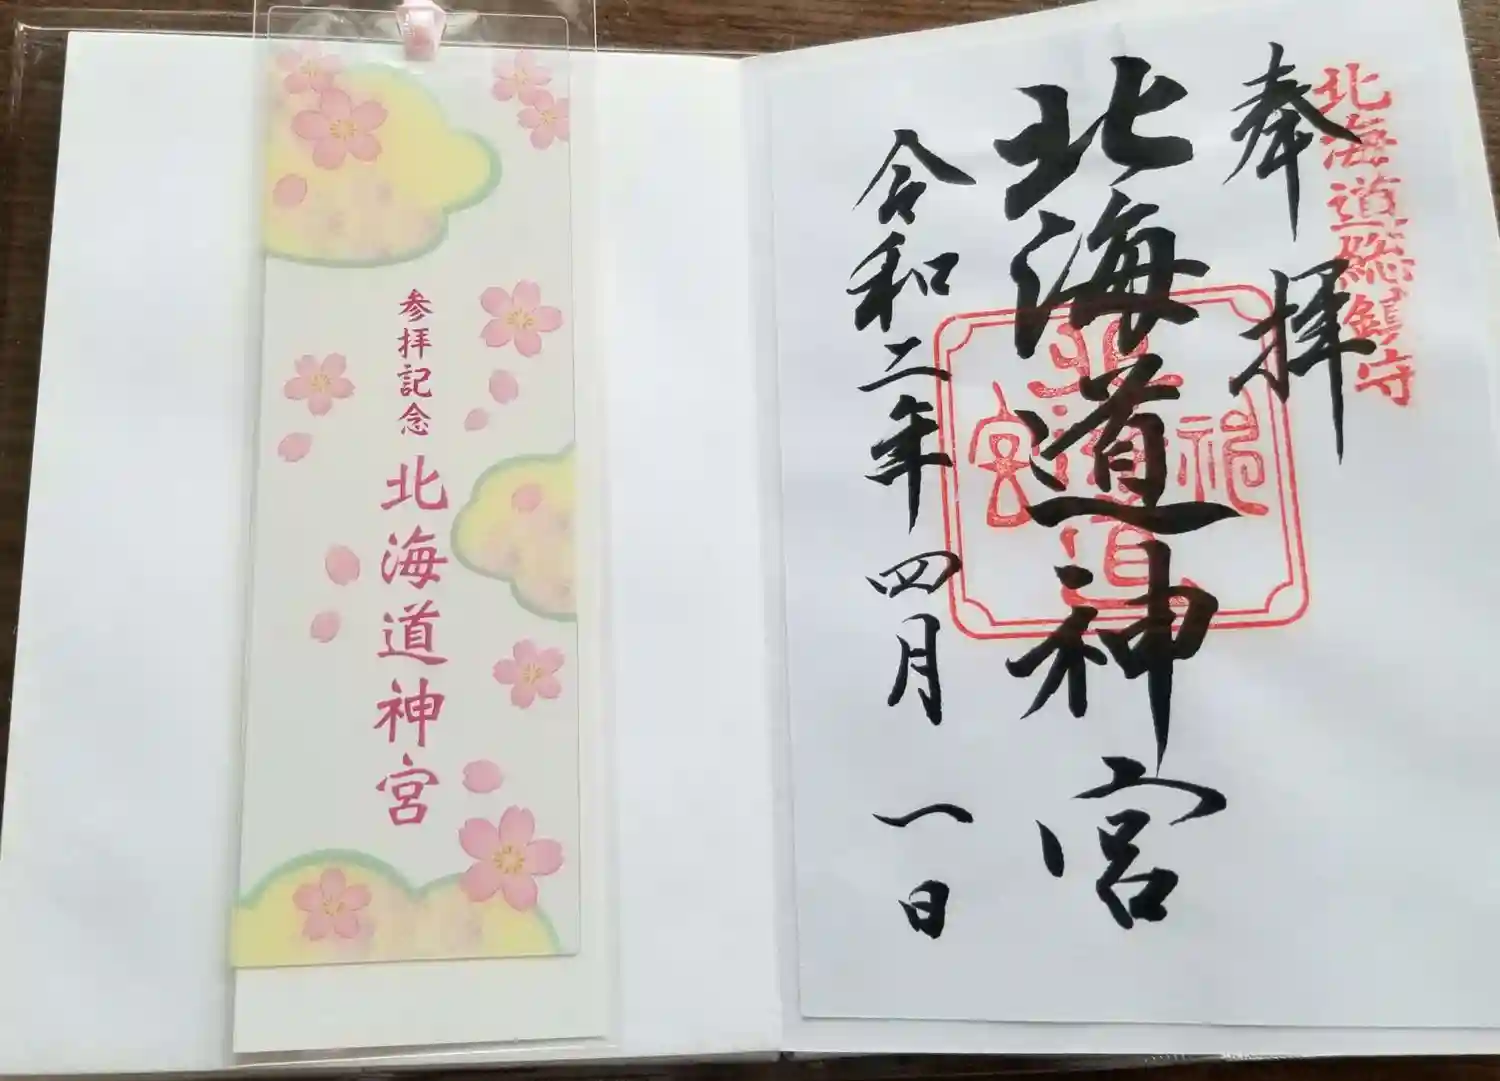 北海道総鎮守
奉拝
北海道神宮
令和二年四月一日
参拝記念
北海道神宮